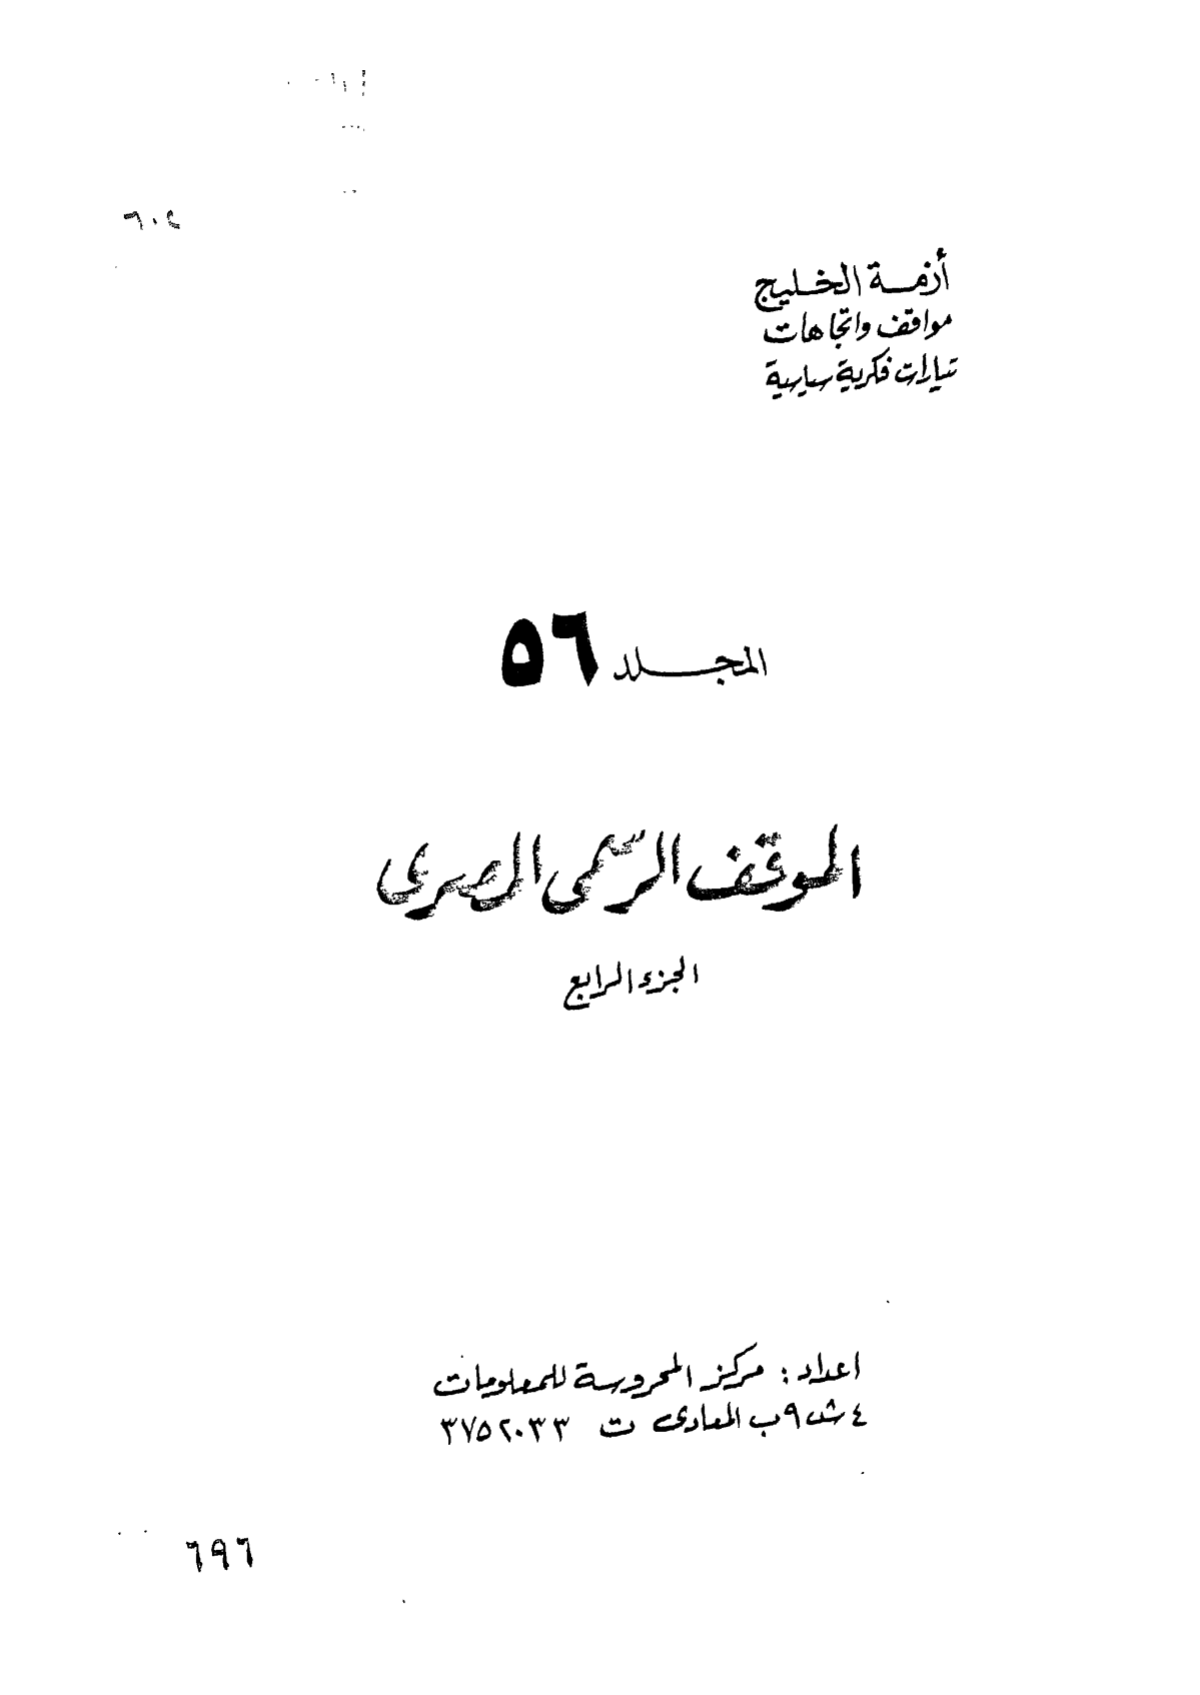 ٦٠٤
أزمة الخليج
مواقف واتجاهات
تيارات فكرية سياسية
المجلد ٥٦
الموقف الرسمى المصرى
الجزء الرابع
اعداد : مركز المحروسة للمعلومات
٤ ش ٩ب المعادى ت ٣٧٥٢٠٣٣
٦٩٦